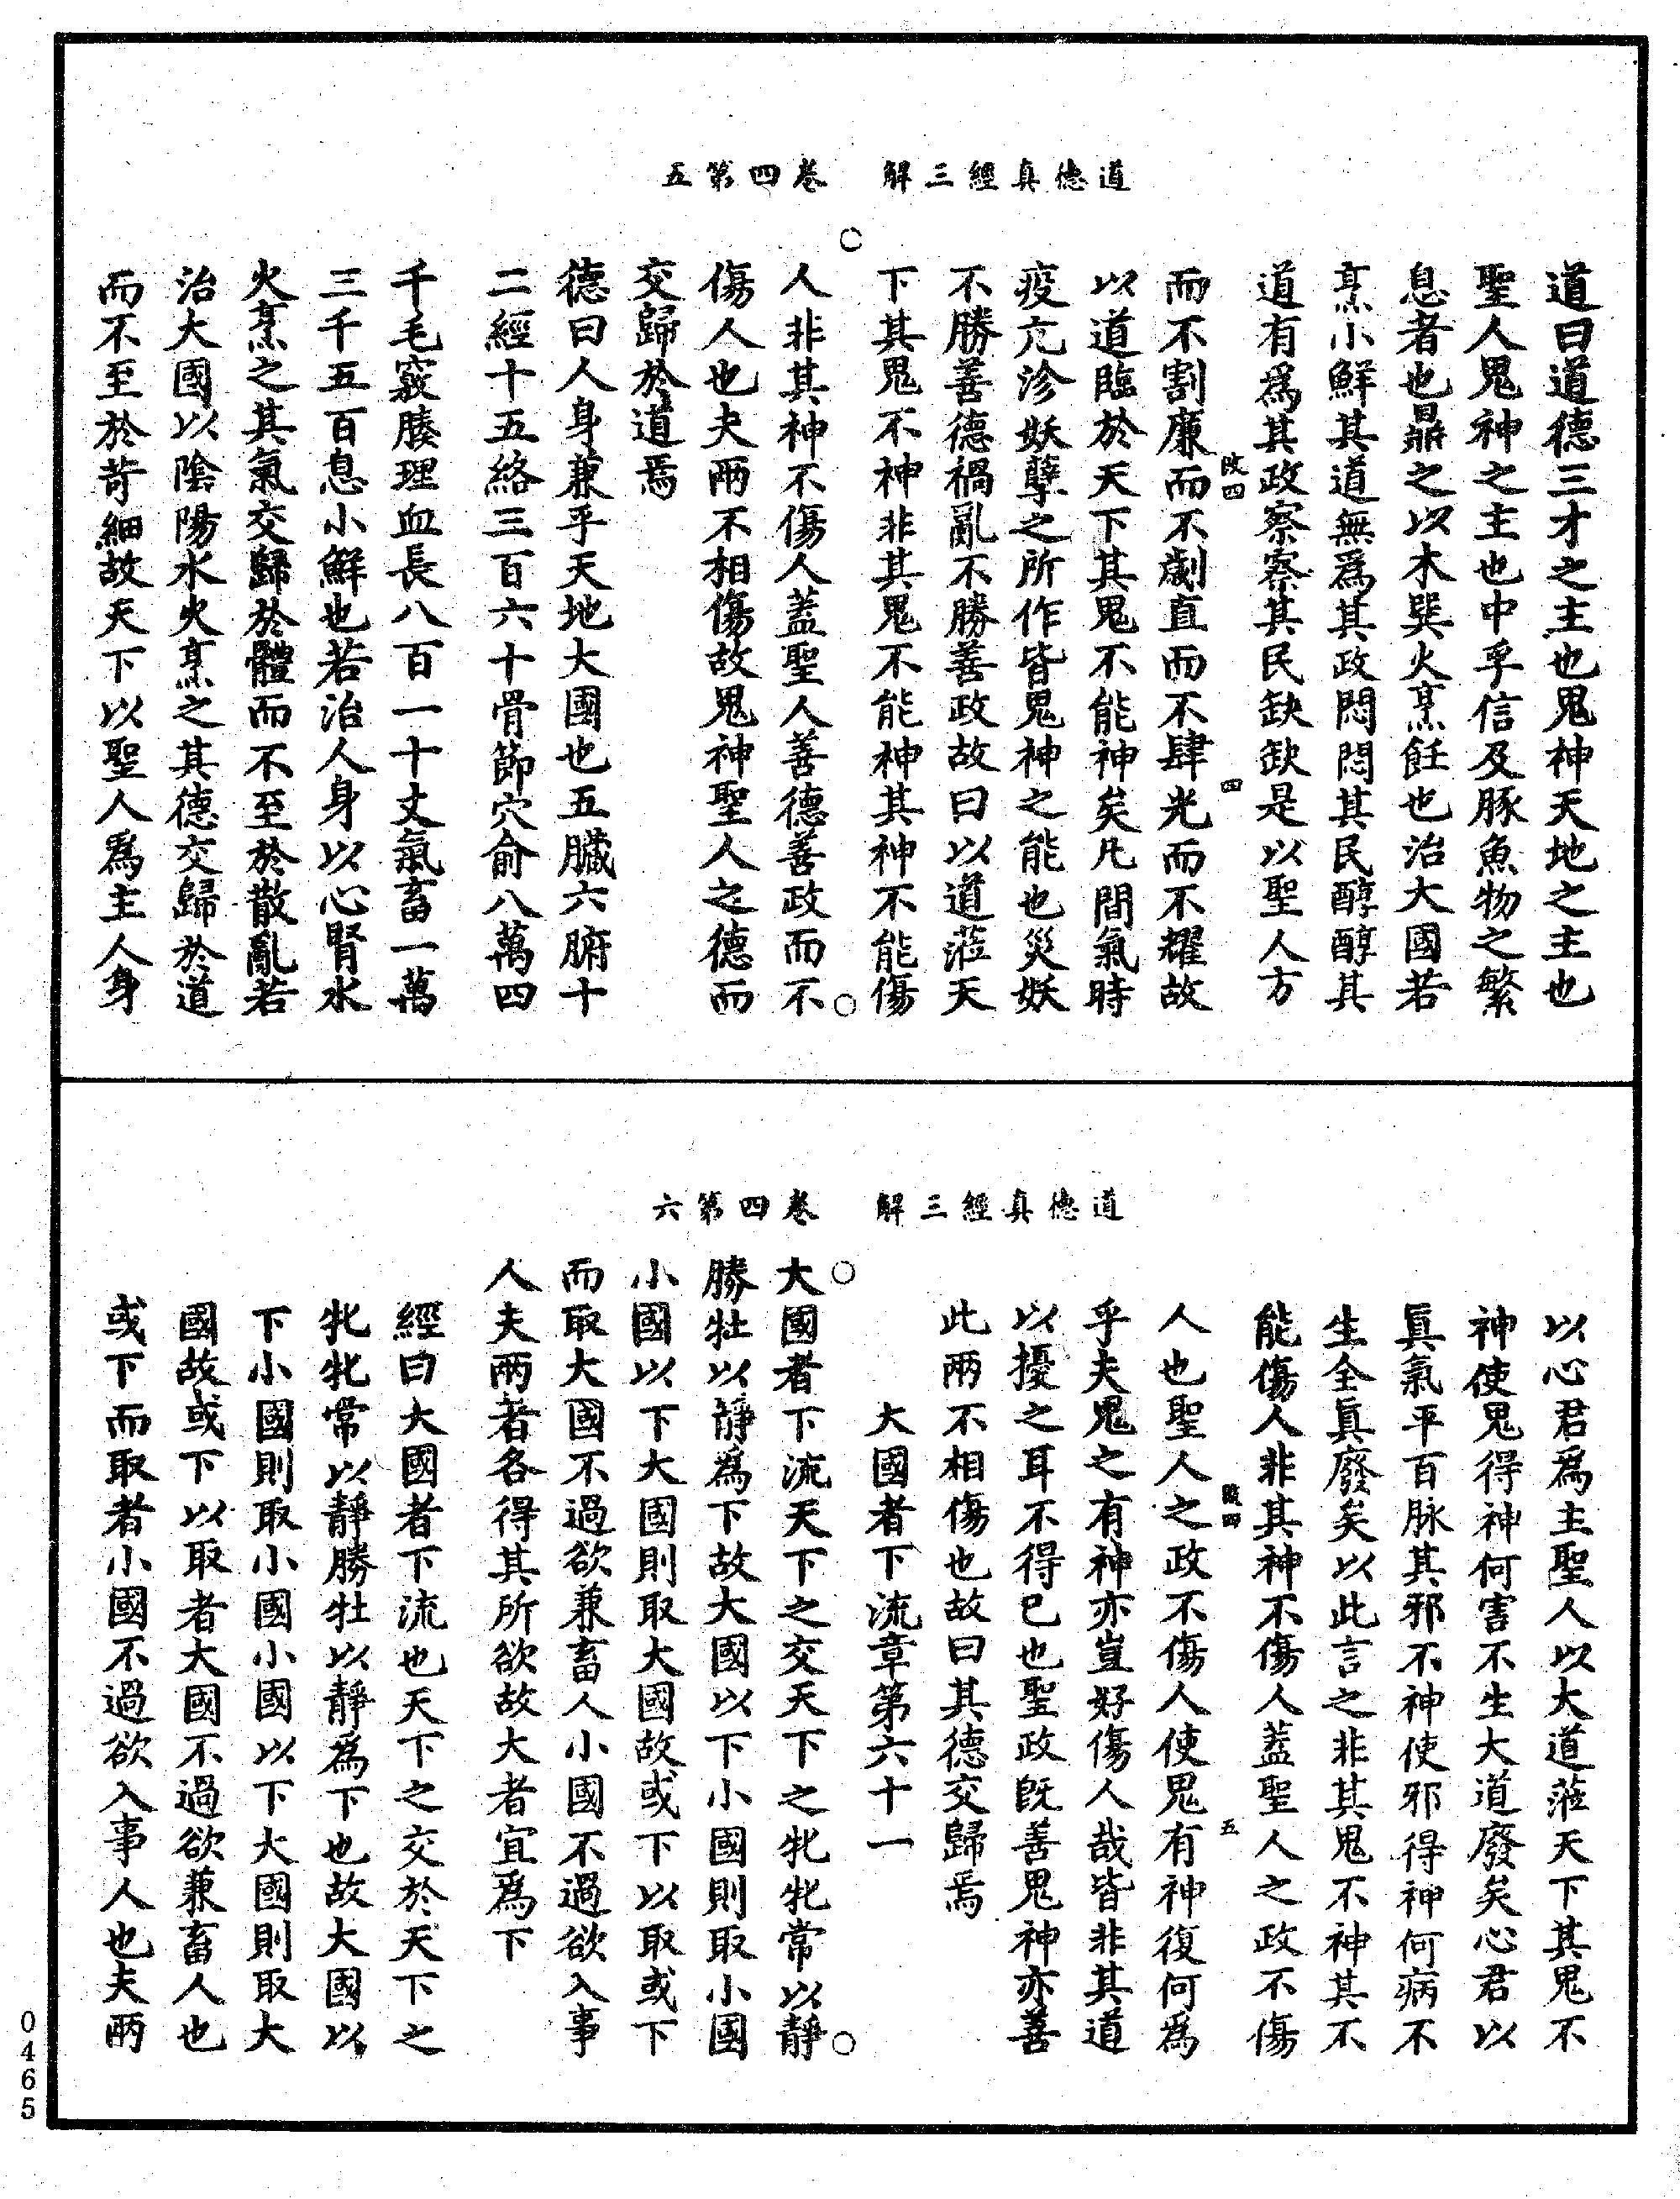 道德真經三解　卷四第五
道曰道德三才之主也鬼神天地之主也
聖人鬼神之主也中孚信及豚魚物之繁
息者也鼎之以木巽火烹飪也治大國若
烹小鮮其道無爲其政悶悶其民醇醇其
道有爲其政察察其民缺缺是以聖人方
而不割廉而不劌直而不肆光而不耀故
以道臨於天下其鬼不能神矣凡間氣時
疫亢沴妖孽之所作皆鬼神之能也災妖
不勝善德禍亂不勝善政故曰以道蒞天
下其鬼不神非其鬼不能神其神不能傷
人非其神不傷人蓋聖人善德善政而不
傷人也夫兩不相傷故鬼神聖人之德而
交歸於道焉
德曰人身兼乎天地大國也五臟六腑十
二經十五絡三百六十骨節穴俞八萬四
千毛竅腠理血長八百一十丈氣畜一萬
三千五百息小鮮也若治人身以心腎水
火烹之其氣交歸於體而不至於散亂若
治大國以陰陽水火烹之其德交歸於道
而不至於苛細故天下以聖人爲主人身
道德真經三解　卷四第六
以心君爲主聖人以大道蒞天下其鬼不
神使鬼得神何害不生大道廢矣心君以
眞氣平百脉其邪不神使邪得神何病不
生全眞廢矣以此言之非其鬼不神其不
能傷人非其神不傷人蓋聖人之政不傷
人也聖人之政不傷人使鬼有神復何爲
乎夫鬼之有神亦豈好傷人哉皆非其道
以擾之耳不得已也聖政旣善鬼神亦善
此兩不相傷也故曰其德交歸焉
大國者下流章第六十一
大國者下流天下之交天下之牝牝常以靜
勝牡以靜爲下故大國以下小國則取小國
小國以下大國則取大國故或下以取或下
而取大國不過欲兼畜人小國不過欲入事
人夫兩者各得其所欲故大者宜爲下
經曰大國者下流也天下之交於天下之
牝牝常以靜勝牡以靜爲下也故大國以
下小國則取小國小國以下大國則取大
國故或下以取者大國不過欲兼畜人也
或下而取者小國不過欲入事人也夫兩
0465